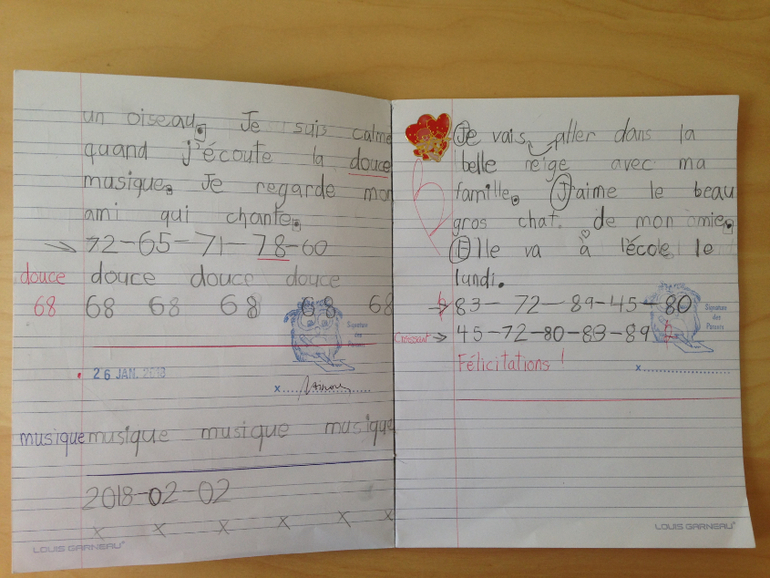 un oiseau. Je suis calme
quand j'écoute la douce
musique. Je regarde mon
ami qui chante.
72-65-71-78-60
douce douce douce douce
68 68 68 68 68 68
26 JAN. 2018
Signature des Parents
x
musique musique musique musique
2018-02-02
x x x x x x
LOUIS GARNEAU
Je vais aller dans la
belle neige avec ma
famille. J'aime le beau
gros chat. de mon amie.
Elle va à l'école le
lundi.
83-72-89-45-80
Croissant → 45-72-80-83-89
Félicitations !
Signature des Parents
x
LOUIS GARNEAU